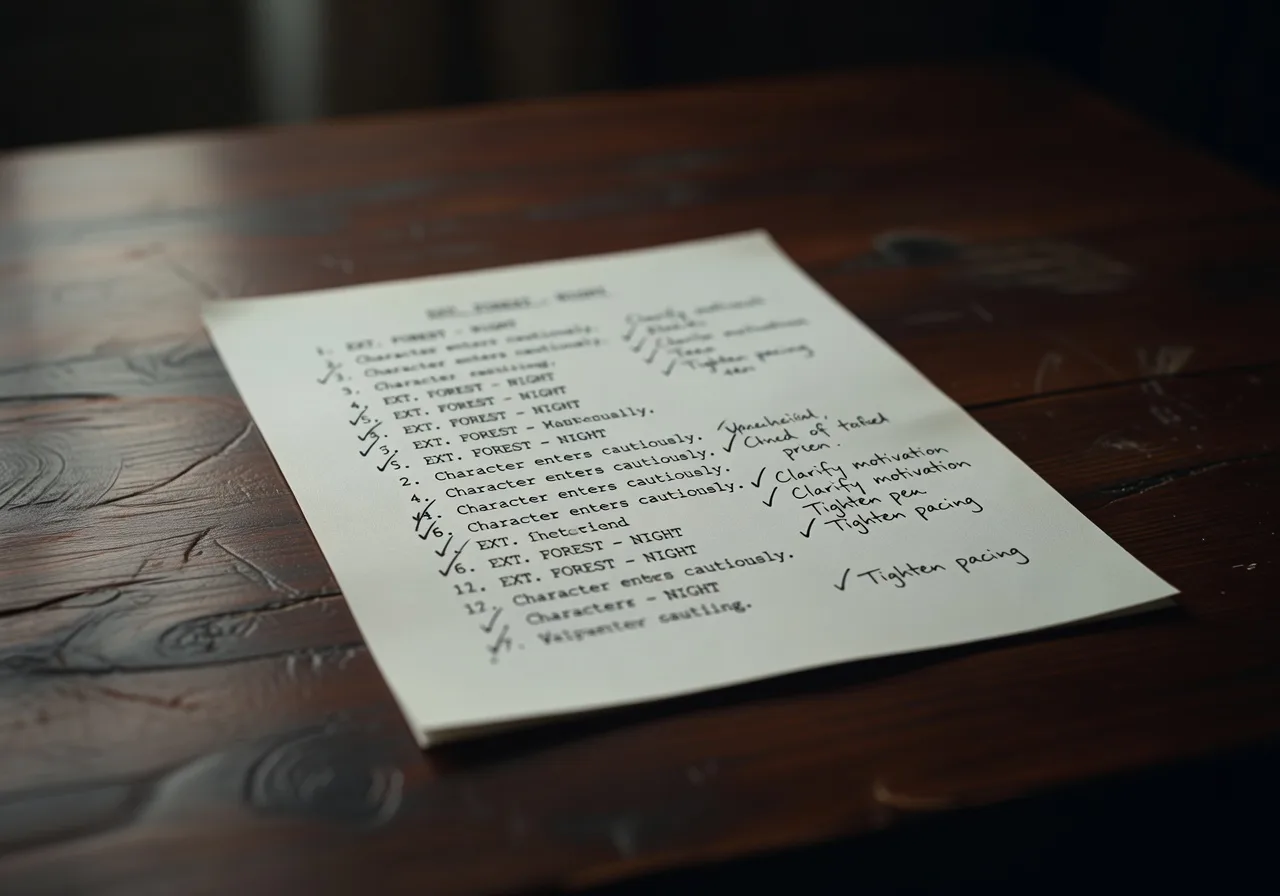 EXT. FOREST - NIGHT
1. EXT. FOREST - NIGHT
2. Character enters cautiously.
3. Character enters cautiously.
3. Character
4. EXT. FOREST - NIGHT
5. EXT. FOREST - NIGHT
3. EXT. FOREST -
5. EXT. FOREST - NIGHT
2. Character enters cautiously.
4. Character enters cautiously.
4. Character enters cautiously.
6. EXT.
6. EXT. FOREST - NIGHT
11. EXT. FOREST - NIGHT
12. Character enters cautiously.
Characters - NIGHT
7.
Clarify
Clarify motivation
Tighten pacing
of
Clarify motivation
Clarify motivation
Tighten pen
Tighten pacing
Tighten pacing